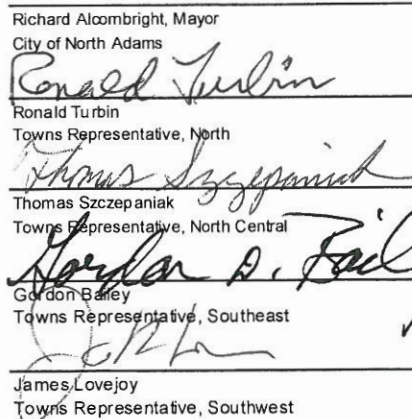 Richard Alcombright, Mayor
City of North Adams
Ronald Turbin
Ronald Turbin
Towns Representative, North
Thomas Szczepaniak
Thomas Szczepaniak
Towns Representative, North Central
Gordon D. Bail
Gordon Bailey
Towns Representative, Southeast
James Lovejoy
Towns Representative, Southwest